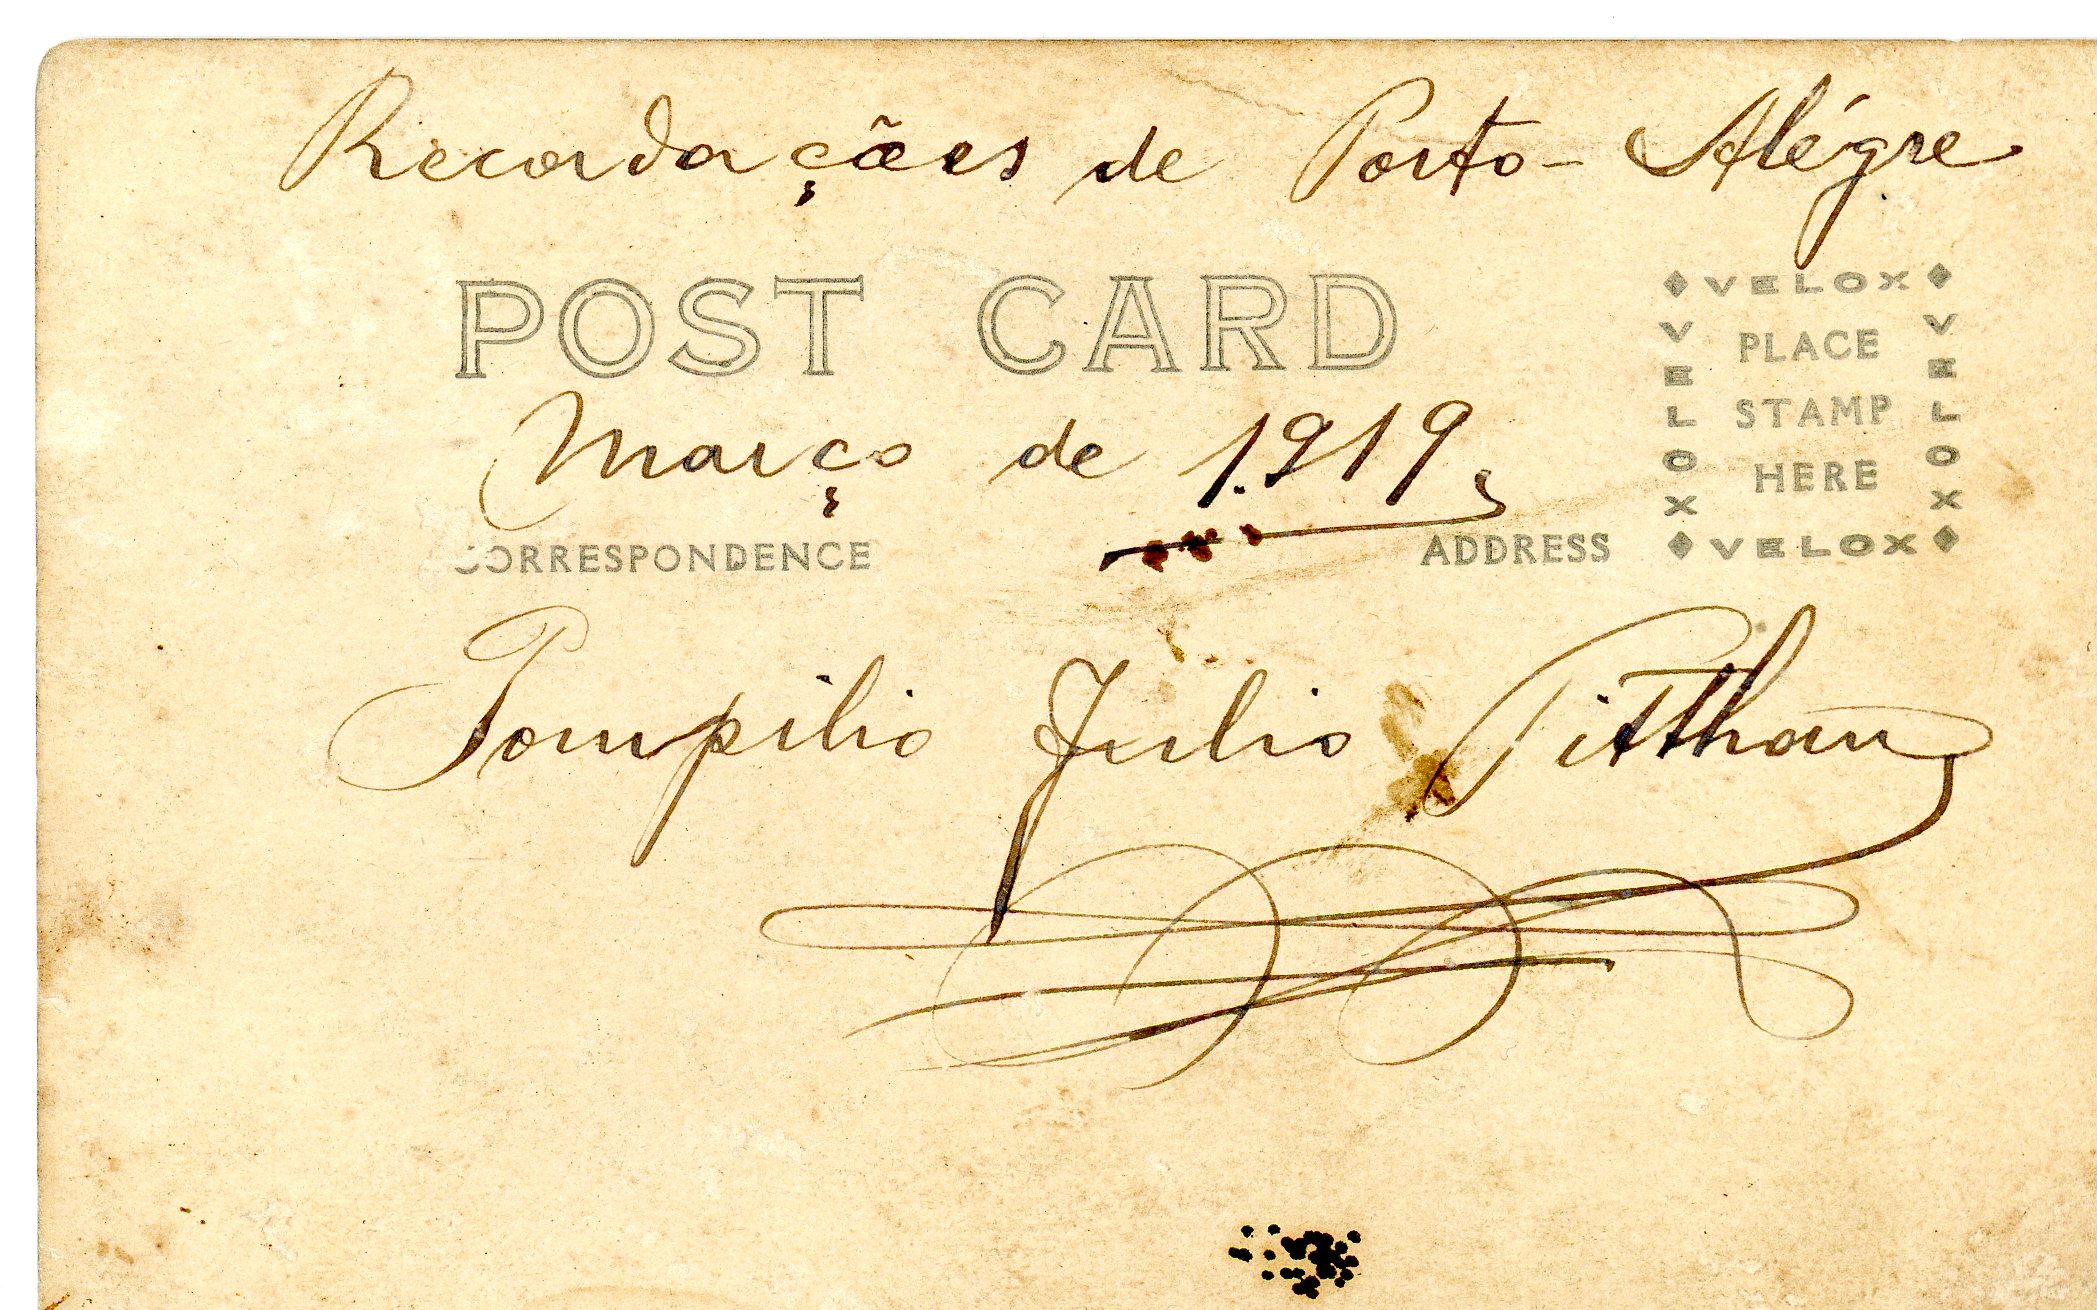 Recordações de Porto-Alégre
POST CARD
VELOX
VELOX
PLACE
STAMP
HERE
VELOX
VELOX
Março de 1.919,
CORRESPONDENCE
ADDRESS
Pompilio Julio Pitthan